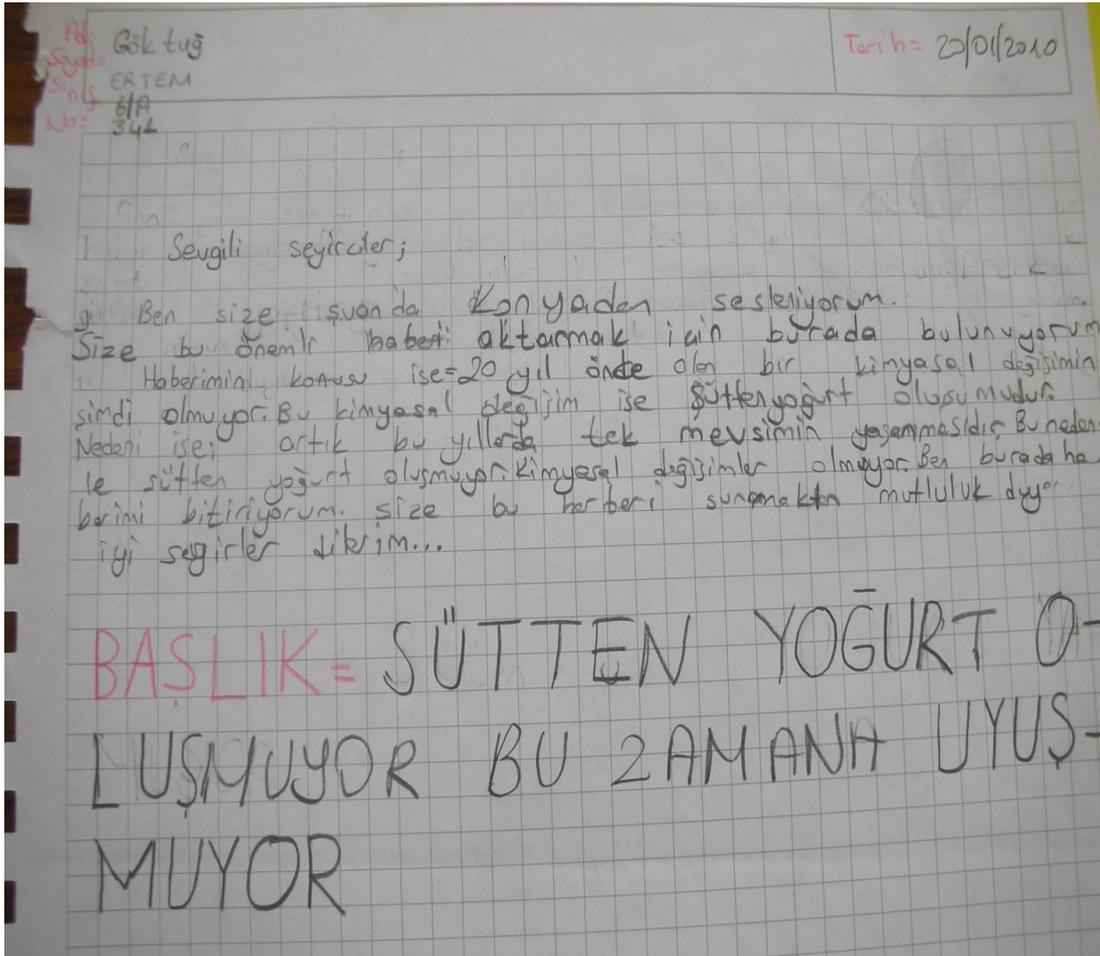 Ad: Göktuğ
Soyad: ERTEM
Sınıf: 6/A
No: 341
Tarih= 20/01/2010
Sevgili seyirciler;
Ben size şuanda Konyadan sesleniyorum.
Size bu önemli haberi aktarmak için burada bulunuyorum
Haberimin konusu ise=20 yıl önde olan bir kimyasal değişimin
şimdi olmuyor. Bu kimyasal değişim ise Sütten yoğurt oluşumudur.
Nedeni ise; artık bu yıllarda tek mevsimin yaşanmasıdır. Bu neden
le sütten yoğurt oluşmuyor. kimyasal değişimler olmuyor. Ben burada ha
berimi bitiriyorum. size bu herberi sunmaktn mutluluk
iyi
BAŞLIK= SÜTTEN YOĞURT O-
LUŞMUYOR BU ZAMANA UYUŞ-
MUYOR